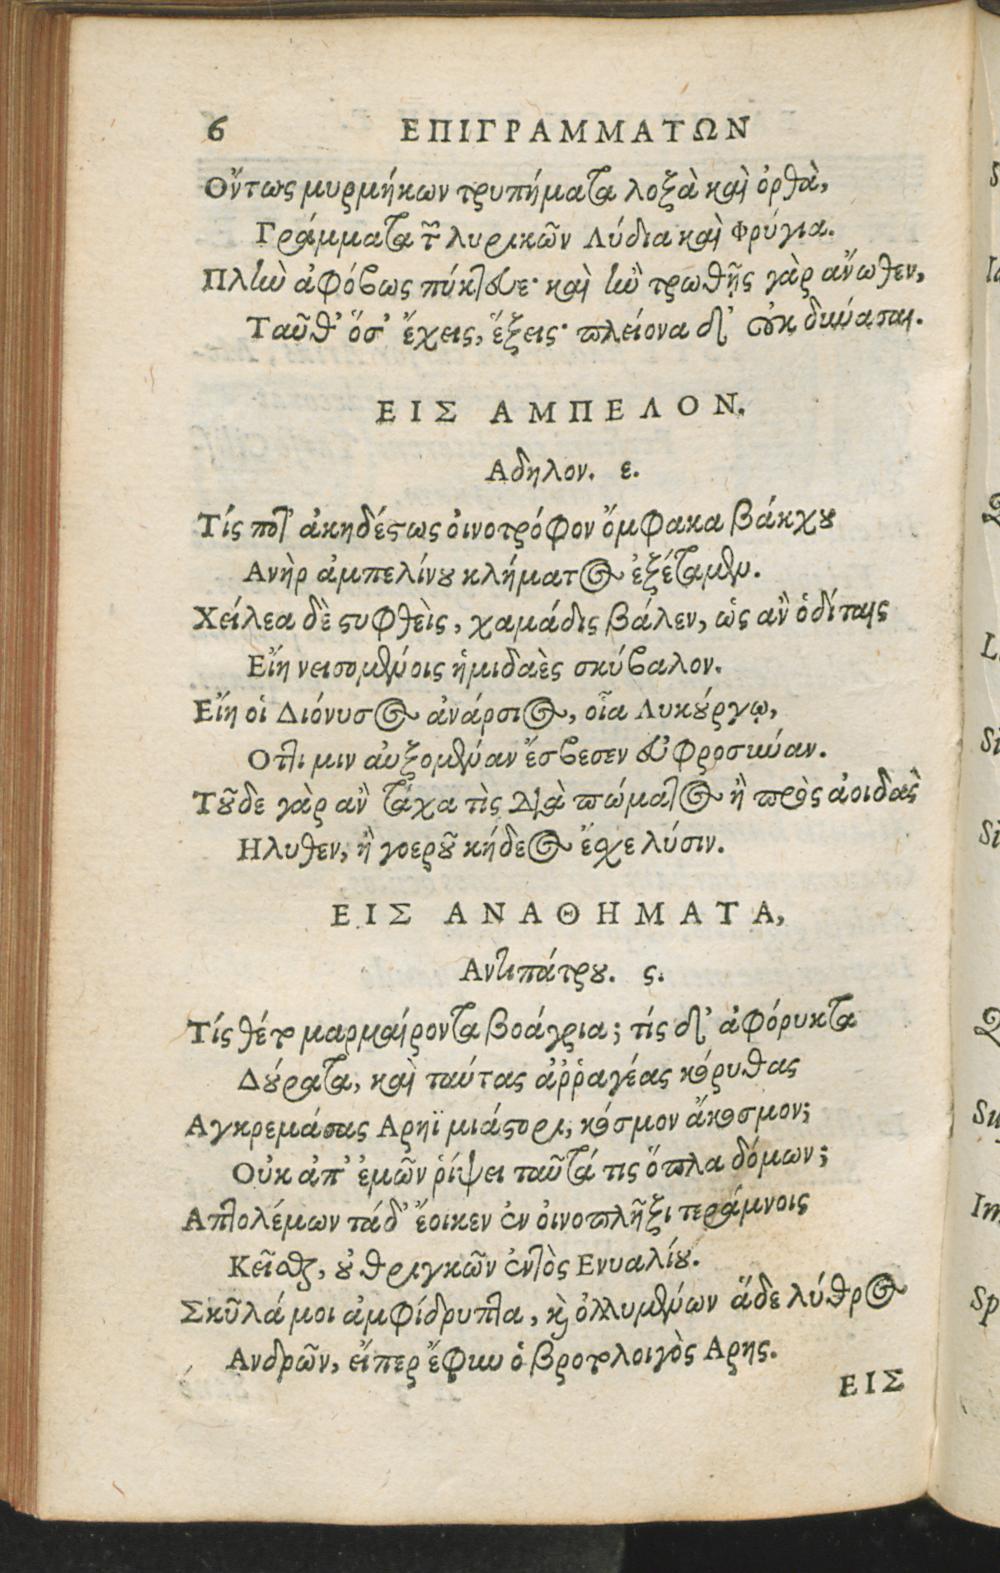 6 ΕΠΙΓΡΑΜΜΑΤΩΝ
Οὕτως μυρμήκων τρυπήματα λοξὰ καὶ ὀρθὰ,
Γράμματα τῶν λυρικῶν Λύδια καὶ Φρύγια.
Πλὴν ἀφόβως πύκτευε· καὶ ἢν τρωθῇς γὰρ ἄνωθεν,
Ταῦθ' ὅσ' ἔχεις, ἕξεις· πλείονα δ' οὐκ δύνασαι.
ΕΙΣ ΑΜΠΕΛΟΝ.
Αδηλον. ε.
Τίς ποτ' ἀκηδέστως οἰνοτρόφον ὄμφακα βάκχου
Ανὴρ ἀμπελίνου κλήματος ἐξέταμεν.
Χείλεα δὲ στυφθεὶς, χαμάδις βάλεν, ὡς ἂν ὁδίταις
Εἴη νεισομένοις ἡμιδαὲς σκύβαλον.
Εἴη οἱ Διόνυσος ἀνάρσιος, οἷα Λυκούργῳ,
Οττι μιν αὐξομέναν ἔσβεσεν εὐφροσύναν.
Τοῦδε γὰρ ἂν τάχα τὶς διὰ πώματος ἢ πρὸς ἀοιδὰς
Ηλυθεν, ἢ γοεροῦ κήδεος ἔσχε λύσιν.
ΕΙΣ ΑΝΑΘΗΜΑΤΑ,
Αντιπάτρου. ς.
Τίς θέτο μαρμαίροντα βοάγρια; τίς δ' ἀφόρυκτα
Δούρατα, καὶ ταύτας ἀῤῥαγέας κόρυθας
Αγκρεμάσας Αρηϊ μιάστορι, κόσμον ἄκοσμον;
Οὐκ ἀπ' ἐμῶν ῥίψει ταῦτά τις ὅπλα δόμων;
Απτολέμων τάδ' ἔοικεν ἐν οἰνοπλῆξι τεράμνοις
Κεῖσθαι, οὐ θριγκῶν ἐντὸς Ενυαλίου.
Σκῦλά μοι ἀμφίδρυπτα, καὶ ὀλλυμένων ἅδε λύθρος
Ανδρῶν, εἴπερ ἔφυν ὁ βροτολοιγὸς Αρης.
ΕΙΣ